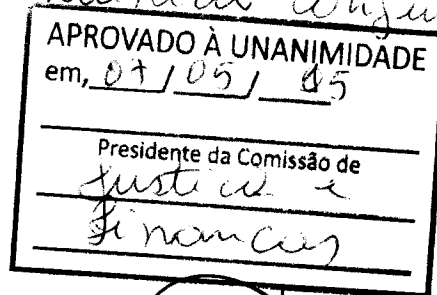 APROVADO À UNANIMIDADE
em, 07 / 05 / 15
Presidente da Comissão de
Justiça e
Finanças